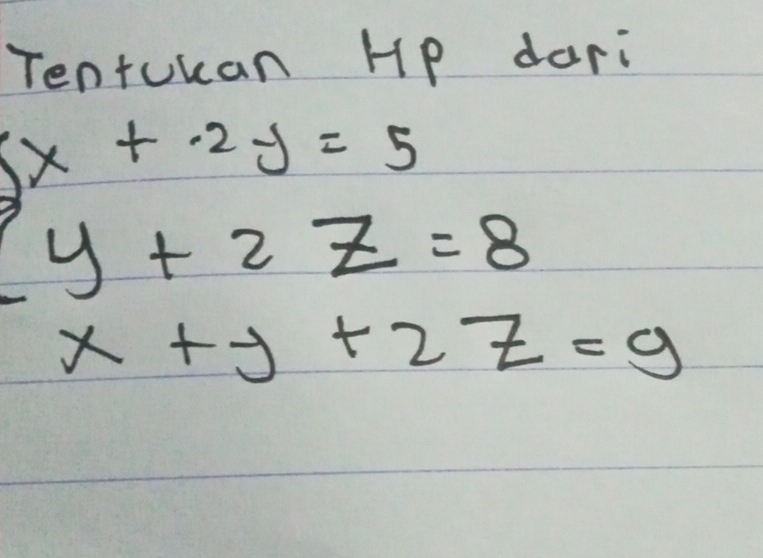 Tentukan Hp dari
x + 2y = 5
y + 2 Z = 8
x + y + 2 Z = 9